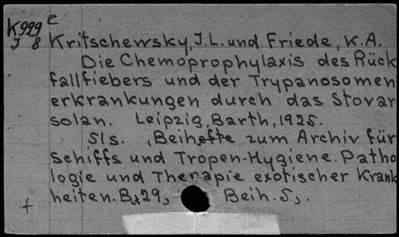 K929 e
J 8
Kritschewsky, J.L. und Friede, K.A.
Die Chemoprophylaxis des Rück
fallfiebers und der Trypanosomen
erkrankungen durch das Stovar
solan. Leipzig, Barth, 1925.
51s. (Beihefte zum Archiv für
Schiffs und Tropen-Hygiene. Patho
logie und Therapie exotischer Krank
heiten. Bd. 29, Beih. 5).
+